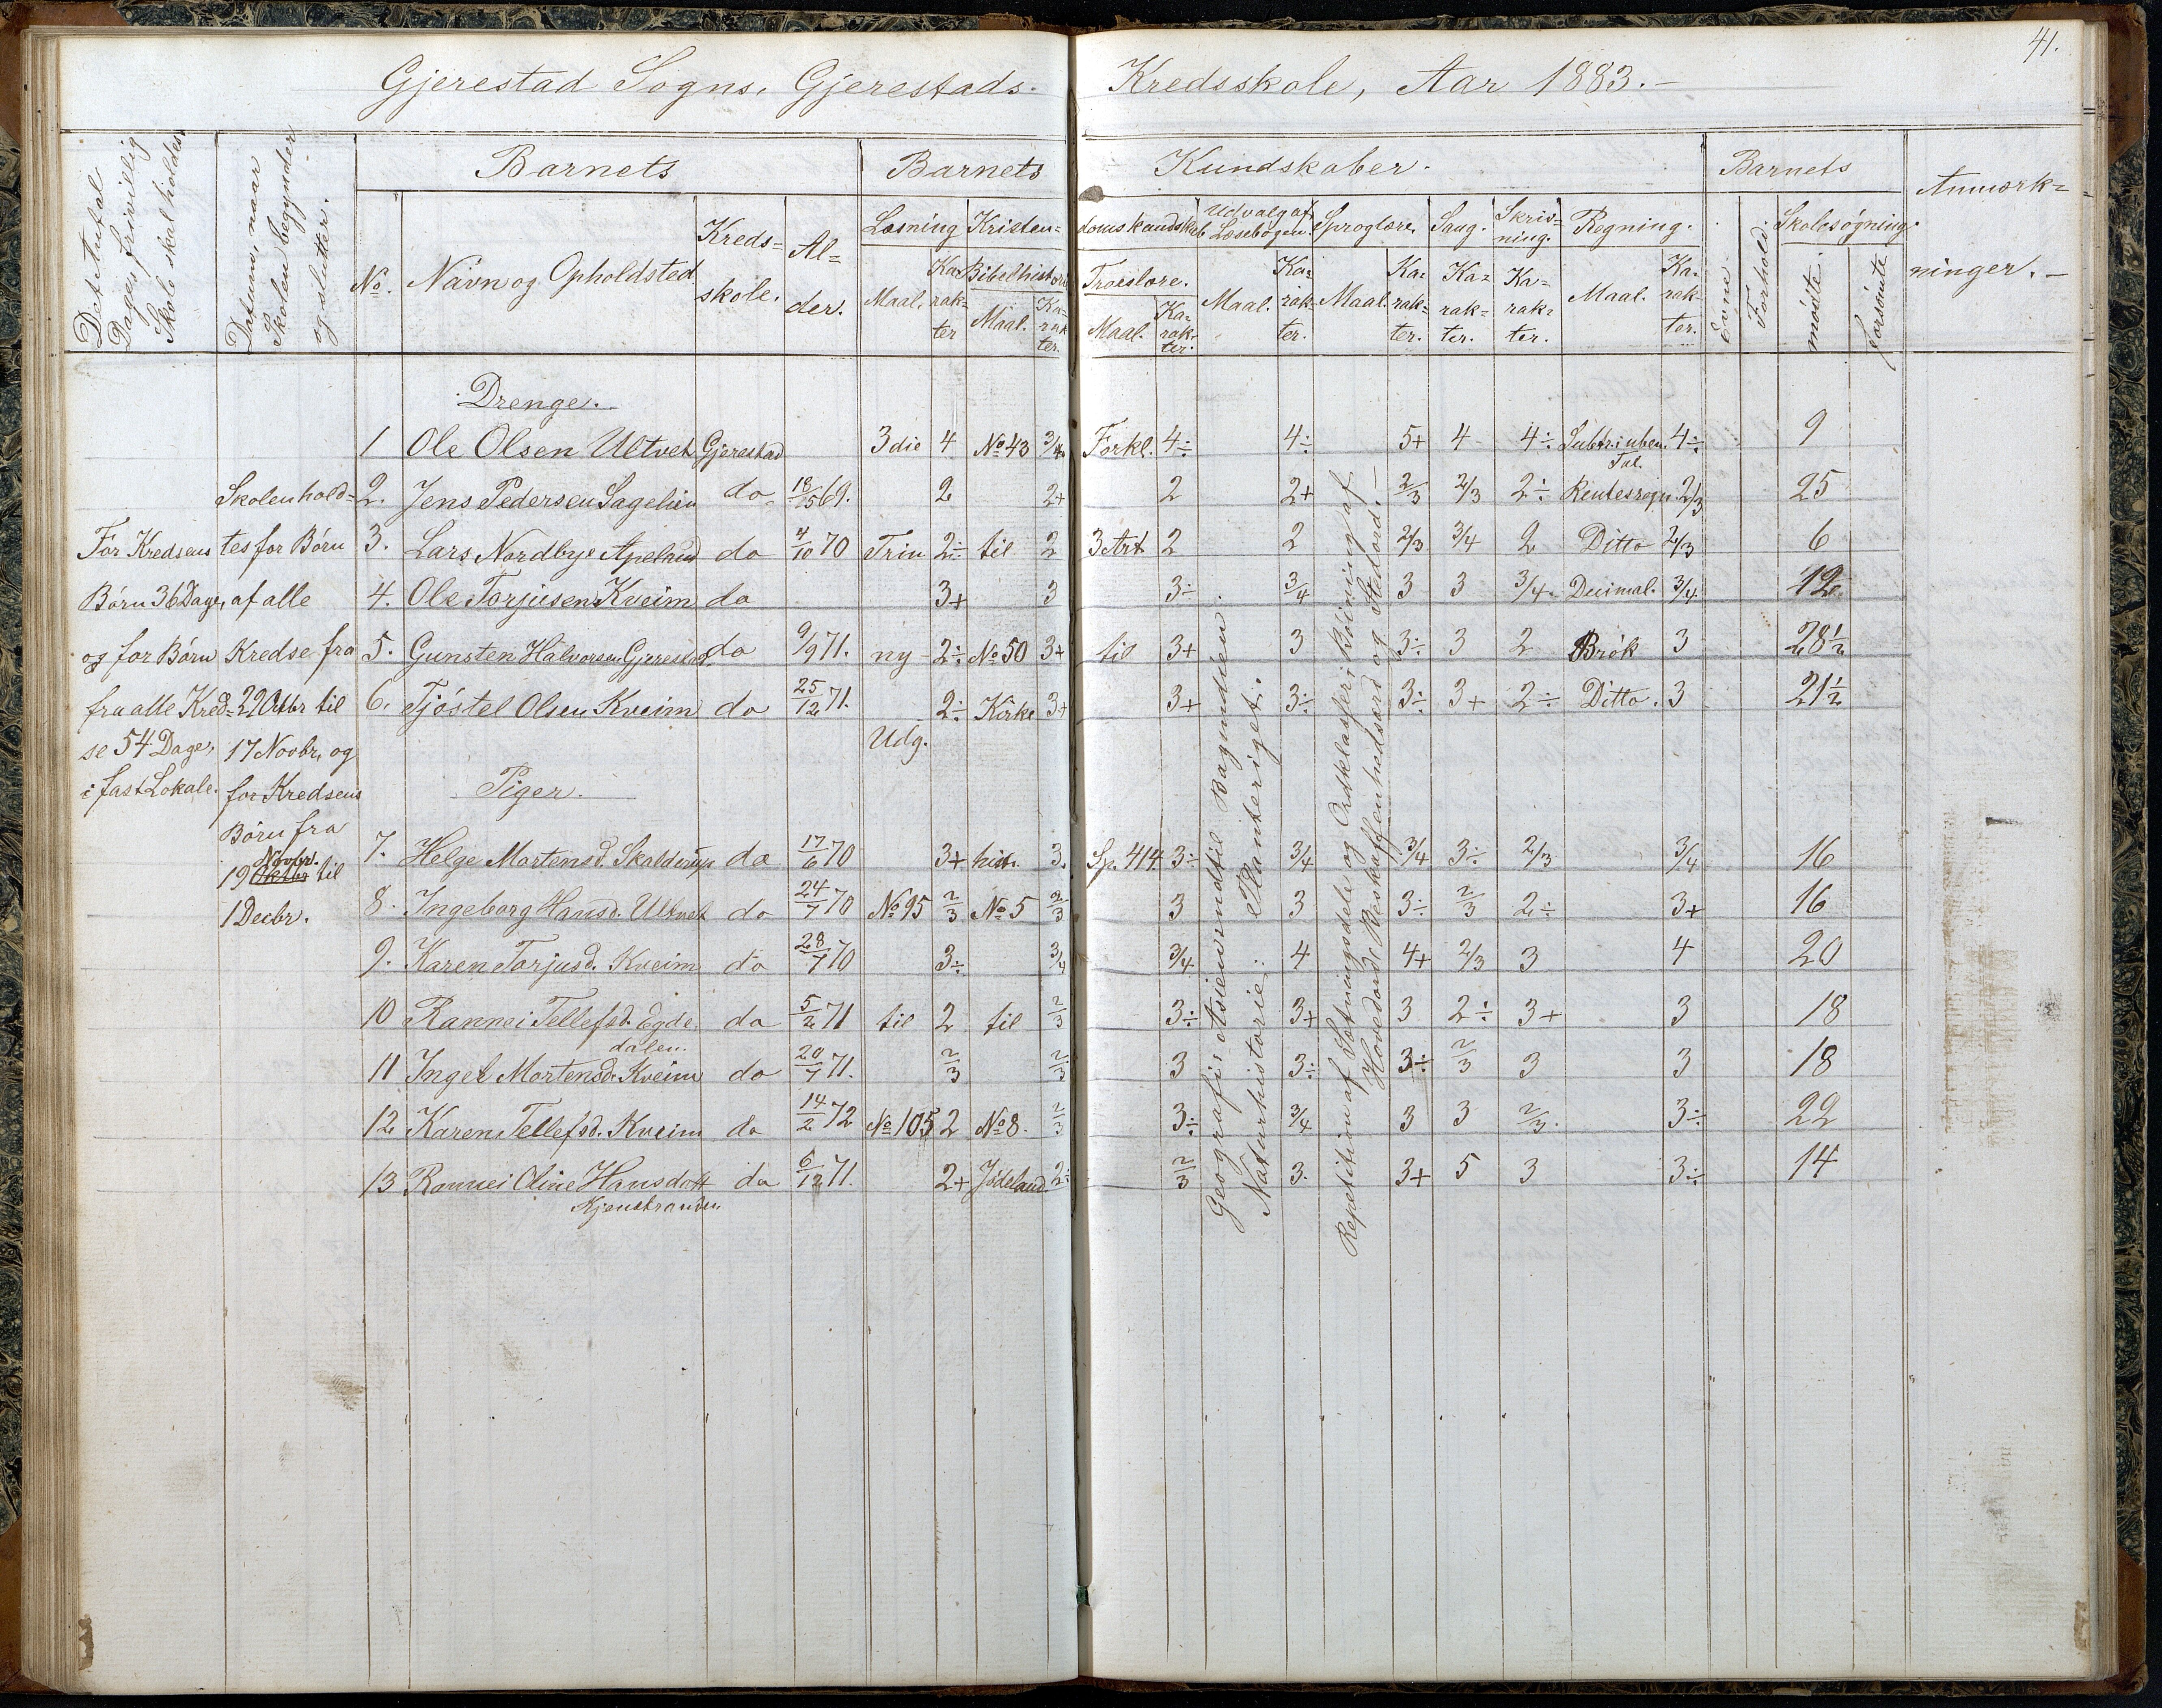 41.
Gjerestad Sogns, Gjerestads Kredsskole, Aar 1883.-
Det Antal Dage, frivillig Skole skal holdes
Datum, naar Skolen begynder og slutter.
Barnets
Barnets Kundskaber.
Barnets
Anmærkninger.-
No. Navn og Opholdsted Kredsskole. Alder.
Læsning Kristendomskundskab Udvalg af Læsebogen. Sproglære. Sang. Skrivning. Regning. Evne. Forhold. Skolesøgning.
Maal. Karakter Bibelhistorie Maal. Karakter. Troeslære. Maal. Karakter. Maal. Karakter. Maal. Karakter. Karakter. Karakter. Maal. Karakter. mødte. forsømte
Drenge.
1 Ole Olsen Ultvet Gjerestad 3die 4 No 43 3/4 Forkl. 4÷ 4÷ 5+ 4 4÷ Subtr. i uben. Tal. 4÷ 9
2. Jens Pedersen Sagelien do 18/5 69. 2 2+ 2 2+ 2/3 2/3 2÷ Rentesregn. 2/3 25
3. Lars Nordbye Apeland do 4/10 70 Trin 2÷ til 2 3 Art 2 2 2/3 3/4 2 Ditto 2/3 6
4. Ole Torjusen Kveim do 3+ 3 3÷ 3/4 3 3 3/4. Decimal. 3/4 12
5. Gunsten Halvorsen Gjerestad. do 9/9 71. ny 2÷ No 50 3+ til 3+ 3 3÷ 3 2 Brøk 3 28 1/2
6. Tjøstel Olsen Kveim do 25/12 71. 2÷ Kirke 3+ 3+ 3÷ 3÷ 3+ 2÷ Ditto. 3 21 1/2
Udg.
Piger.
7. Helge Mortensd. Skalderup do 17/6 70 3+ hist. 3. Sp. 414 3÷ 3/4 3/4 3÷ 2/3 3/4 16
8. Ingeborg Hansd. Ultvet do 24/7 70 No 95 2/3 No 5 2/3 3 3 3÷ 2/3 2÷ 3+ 16
9. Karen Torjusd. Kveim do 28/7 70 3÷ 3/4 3/4 4 4+ 2/3 3 4 20
10 Rannei Tellefsd. Egdedalen. do 5/2 71 til 2 til 2/3 3÷ 3+ 3 2÷ 3+ 3 18
11 Ingel Mortensd. Kveim do 20/7 71. 2/3 2/3 3 3÷ 3÷ 2/3 3 3 18
12 Karen Tellefsd. Kveim do 14/2 72 No 105 2 No 8. 2/3 3÷ 3/4 3 3 2/3. 3÷ 22
13 Rannei Oline Hansdott Kjenstranden do 6/12 71. 2+ Jødeland. 2÷ 2/3 3. 3+ 5 3 3÷ 14
For Kredsens
Børn 36 Dage,
og for Børn
fra alle Kred-
se 54 Dage,
i fast Lokale.
Skolen hold-
tes for Børn
af alle
Kredse fra
22 Octbr til
17 Novbr, og
for Kredsens
Børn fra
Novbr.
19 Oktbr til
1 Decbr.
Geografi: Asien indtil Bagindien
Naturhistorie: Planteriget.
Repetition af Sætningsdele og Ordklasser; Bøining af
Hovedord, Beskaffenhedsord og Stedord.-